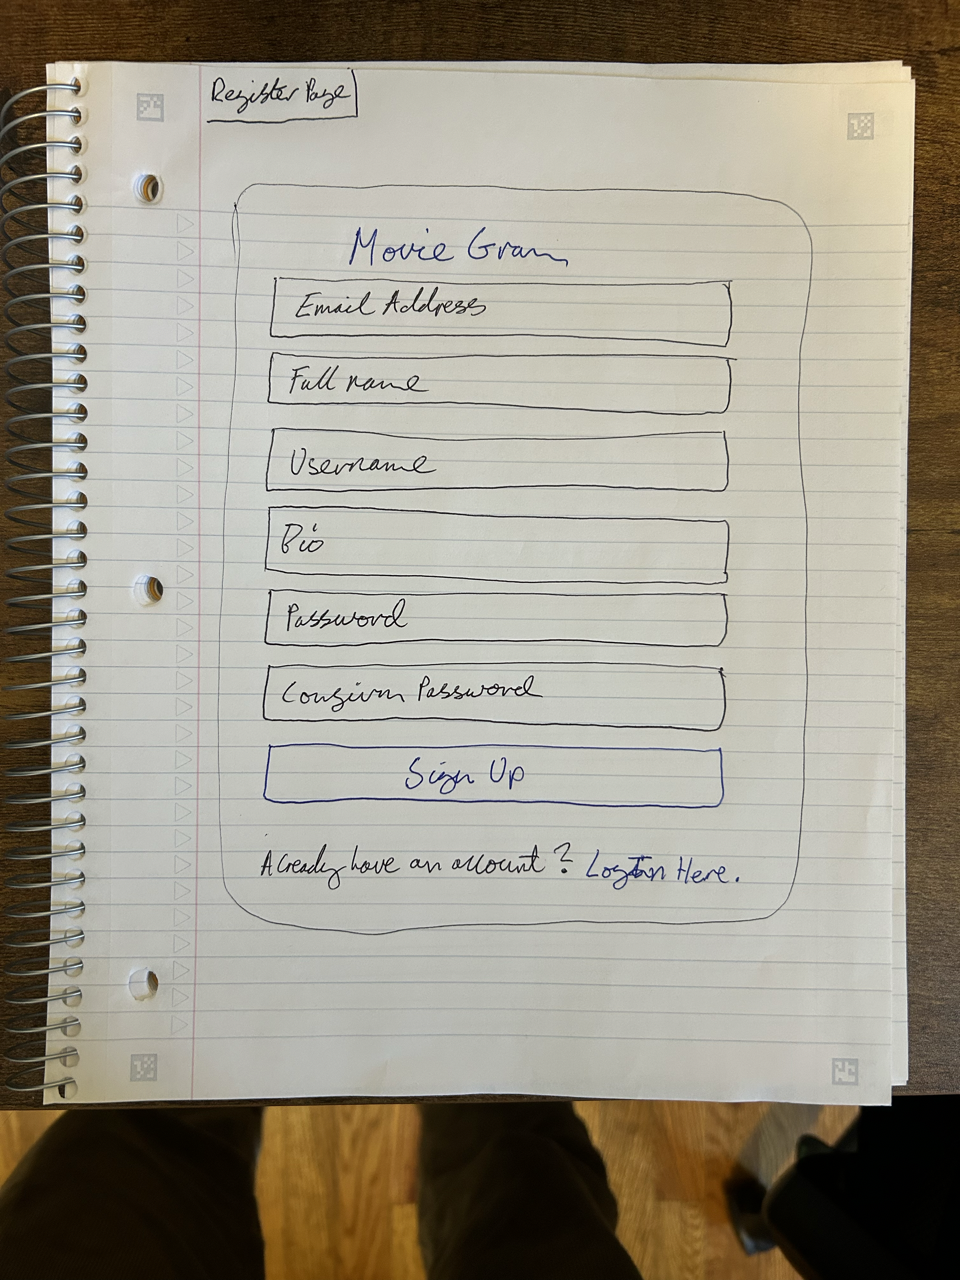 Register Page
Movie Gram
Email Address
Full name
Username
Bio
Password
Confirm Password
Sign Up
Already have an account? Login Here.